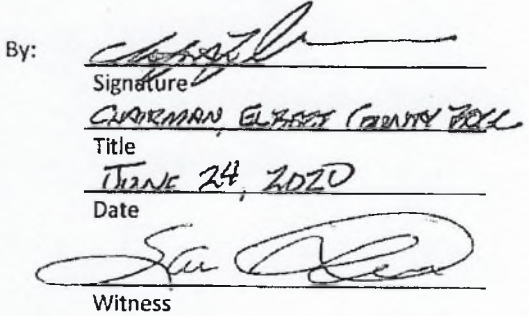 By:
Signature
CHAIRMAN, ELBERT COUNTY BOCC
Title
JUNE 24, 2020
Date
Witness